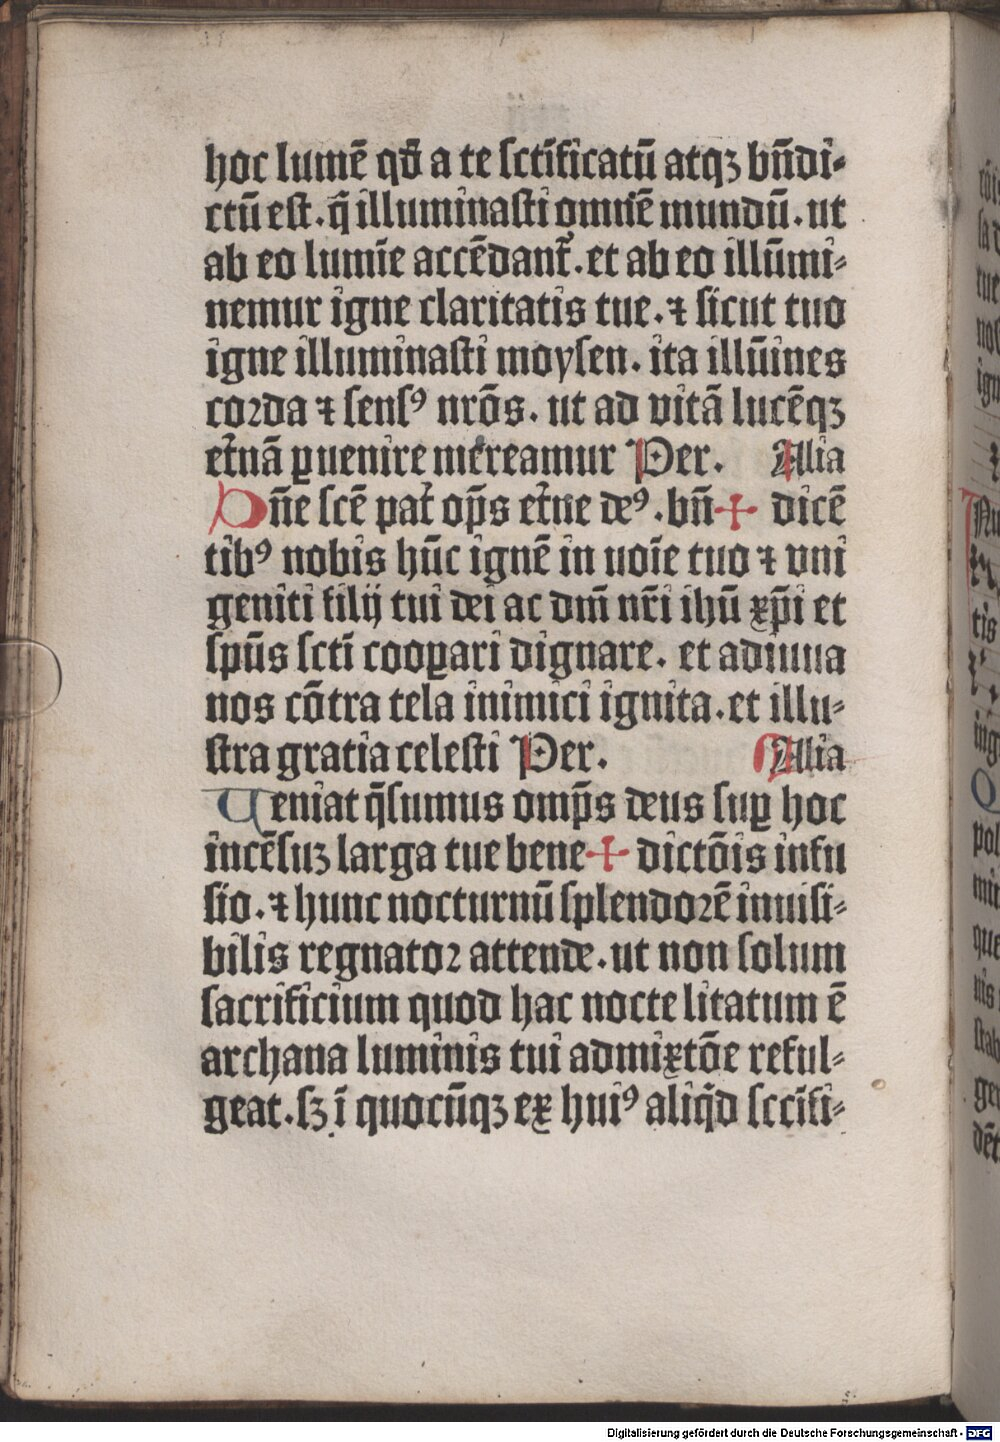 hoc lumē qđ a te sctīficatū atqꝫ bn̄di-
ctū est. q̄ illuminasti omnē mundū. ut
ab eo lumīe accēdant᷑. et ab eo illūmi-
nemur igne claritatis tue. ⁊ sicut tuo
igne illuminasti moysen. ita illūines
corda ⁊ sensꝰ nrōs. ut ad vitā lucēqꝫ
et̄nā ꝑuenire mēreamur Per. Alia
Dn̄e scē pat̄ op̄s et̄ne deꝰ. bn̄ ✢ dicē
tibꝰ nobis hūc ignē in noīe tuo ⁊ vni
geniti filij tui dei ac dm̄ nr̄i ihū xp̄i et
spūs sctī cooꝑari dignare. et adiuua
nos cōtra tela inimici ignita. et illu-
stra gratia celesti Per. Alia
Ueniat q̄sumus omp̄s deus suꝑ hoc
incēsuꝫ larga tue bene ✢ dictōis infu
sio. ⁊ hunc nocturnū splendorē inuisi-
bilis regnator attende. ut non solum
sacrificium quod hac nocte litatum ē
archana luminis tui admixtōe reful-
geat. sꝫ ī quocūqꝫ ex huiꝰ aliq̄d sccīfi-
Digitalisierung gefördert durch die Deutsche Forschungsgemeinschaft - DFG